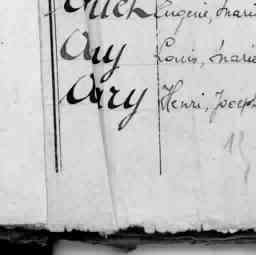 Eugénie, Marie
Auy Louis, Marie
Avry Henri, Joseph
13